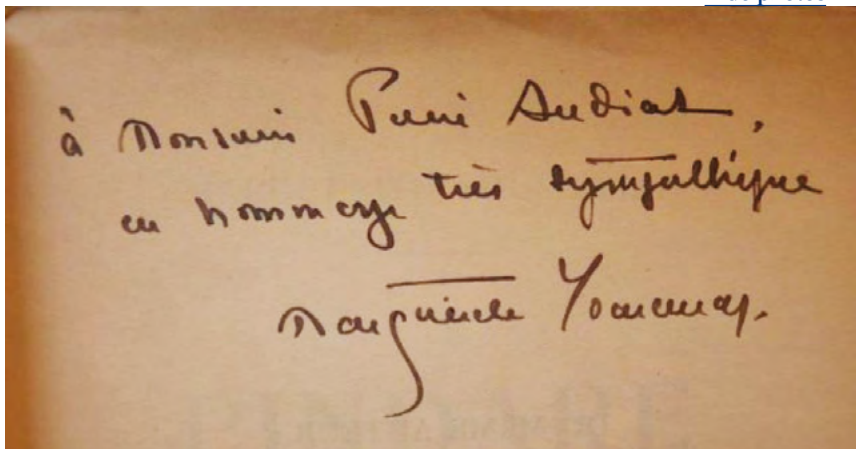 à Monsieur Pierre Audiat,
en hommage très sympathique
Marguerite Yourcenar.